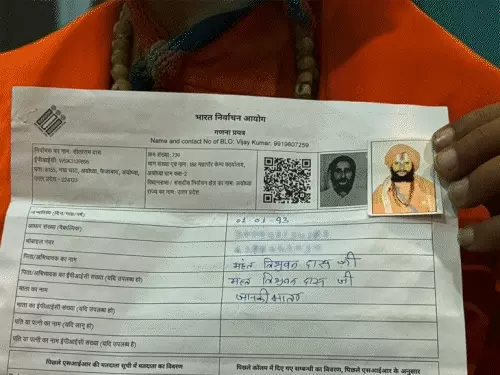 भारत निर्वाचन आयोग
गणना प्रपत्र
Name and contact No of BLO: Vijay Kumar, 9919607259
निर्वाचक का नाम: सीताराम दास
क्रम संख्या, 739
उत्तर प्रदेश - 224123
राज्य का नाम: उत्तर प्रदेश
01-01-93
आधार संख्या (वैकल्पिक)
मोबाइल नंबर
पिता/अभिभावक का नाम
महंत त्रिभुवन दास जी
पिता/अभिभावक का ईपीआईसी संख्या (यदि उपलब्ध हो)
महन्त त्रिभुवन दास जी
माता का नाम
जानकी माता
माता का ईपीआईसी संख्या (यदि उपलब्ध हो)
पति या पत्नी का नाम (यदि लागू हो)
पति या पत्नी का ईपीआईसी संख्या (यदि उपलब्ध है)
पिछले एसआईआर की मतदाता सूची में मतदाता का विवरण
पिछले कॉलम में दिए गए सम्बन्धी का विवरण, पिछले एसआईआर के अनुसार